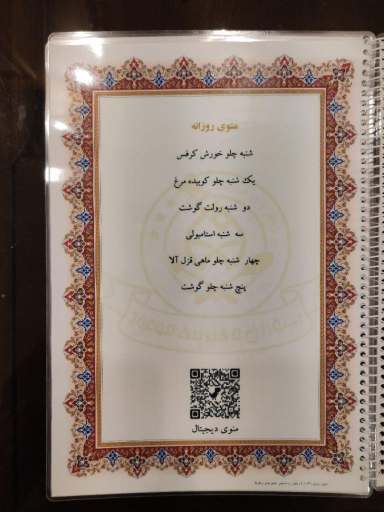 منوی روزانه
شنبه چلو خورش کرفس
یک شنبه چلو کوبیده مرغ
دو شنبه رولت گوشت
سه شنبه استامبولی
چهار شنبه چلو ماهی قزل آلا
پنج شنبه چلو گوشت
منوی دیجیتال